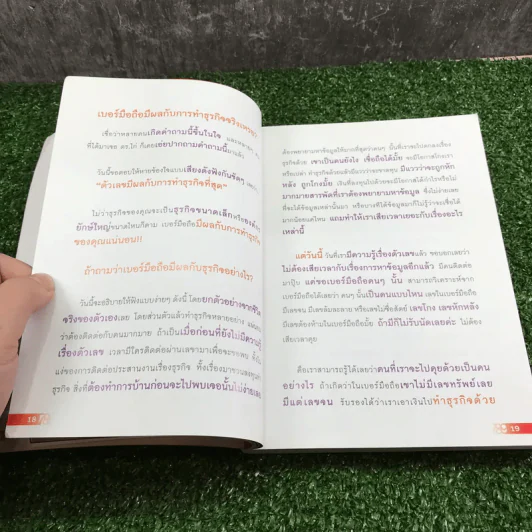 เบอร์มือถือมีผลกับการทำธุรกิจจริงเหรอ?
เชื่อว่าหลายคนเกิดคำถามนี้ขึ้นในใจ และหลายๆ
ที่ได้มาเจอ ดร.ไก่ ก็เคยเอ่ยปากถามคำถามนี้มาแล้ว
วันนี้ขอตอบให้หายข้องใจแบบเสียงดังฟังกันชัดๆ
"ตัวเลขมีผลกับการทำธุรกิจที่สุด"
ไม่ว่าธุรกิจของคุณจะเป็นธุรกิจขนาดเล็กหรือองค์กร
ยักษ์ใหญ่ขนาดไหนก็ตาม เบอร์มือถือมีผลกับธุรกิจ
ของคุณแน่นอน!!
ถ้าถามว่าเบอร์มือถือมีผลกับธุรกิจอย่างไร?
วันนี้จะอธิบายให้ฟังแบบง่ายๆ ดังนี้ โดยยกตัวอย่างจากชีวิต
จริงของตัวเองเลย โดยส่วนตัวแล้วทำธุรกิจหลายอย่าง
ว่าต้องติดต่อกับคนมากมาย ถ้าเป็นเมื่อก่อนที่ยังไม่มีความรู้
เรื่องตัวเลข เวลามีใครติดต่อผ่านเลขามาเพื่อจะขอพบ
แง่ของการติดต่อประสานงานเรื่องธุรกิจ ทั้งเรื่องมาชวนลงทุน
ธุรกิจ สิ่งที่ต้องทำการบ้านก่อนจะไปพบเจอนั้นไม่ง่ายเลย
18
ต้องพยายามหาข้อมูลให้มากที่สุดว่าคนๆ นั้นที่เราจะไปตกลงเรื่อง
ธุรกิจด้วย เขาเป็นคนยังไง เชื่อถือได้มั้ย จะมีโอกาสโกงเรา
หรือเปล่า ทำธุรกิจด้วยแล้วมีแววว่าจะขาดทุน มีแววว่าจะถูกหัก
หลัง ถูกโกงมั้ย เงินที่ลงทุนไปด้วยจะมีโอกาสได้กำไรหรือไม่
มากมายสารพัดที่เราต้องพยายามหาข้อมูล ซึ่งไม่ง่ายเลย
ที่จะได้ข้อมูลเหล่านั้นมา หรือบางทีได้ข้อมูลมาก็ไม่รู้ว่าจะเชื่อได้
มากน้อยแค่ไหน แถมทำให้เราเสียเวลาเยอะกับเรื่องอะไร
เหล่านี้
แต่วันนี้ วันที่เรามีความรู้เรื่องตัวเลขแล้ว ขอบอกเลยว่า
ไม่ต้องเสียเวลากับเรื่องการหาข้อมูลอีกแล้ว มีคนติดต่อ
มาปั๊บ แค่ขอเบอร์มือถือคนๆ นั้น สามารถวิเคราะห์จาก
เบอร์มือถือได้เลยว่า คนๆ นั้นเป็นคนแบบไหน เลขในเบอร์มือถือ
มีเลขจน มีเลขล้มละลาย หรือเลขไม่ซื่อสัตย์ เลขโกง เลขหักหลัง
มีเลขต้องห้ามในเบอร์มือถือมั้ย ถ้ามีก็ไม่รับนัดเลยค่ะ ไม่ต้อง
เสียเวลาคุย
คือเราสามารถรู้ได้เลยว่าคนที่เราจะไปคุยด้วยเป็นคน
อย่างไร ถ้าเกิดว่าในเบอร์มือถือเขาไม่มีเลขทรัพย์เลย
มีแต่เลขจน รับรองได้ว่าเราเอาเงินไปทำธุรกิจด้วย
19